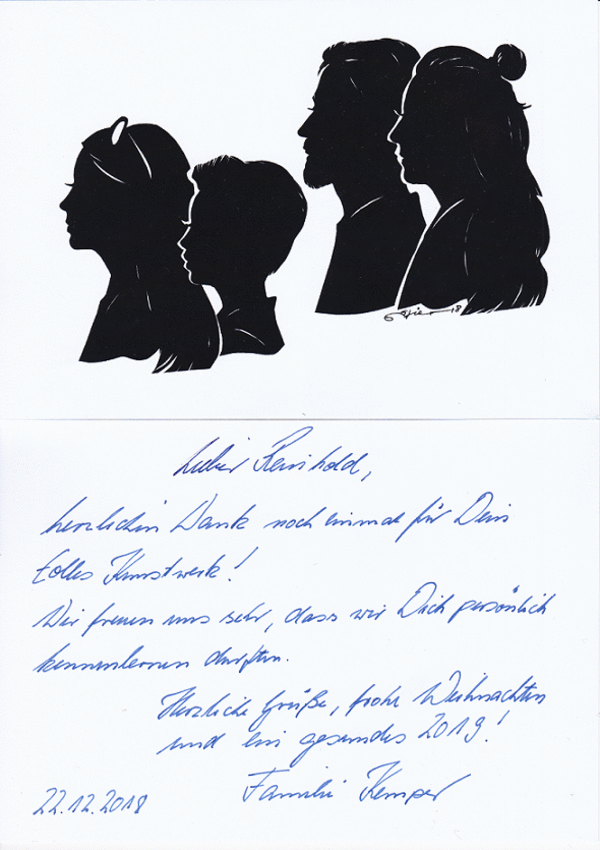 18
Lieber Reinhold,
herzlichen Dank noch einmal für Dein
tolles Kunstwerk!
Wir freuen uns sehr, dass wir Dich persönlich
kennenlernen durften.
Herzliche Grüße, frohe Weihnachten
und ein gesundes 2019!
Familie Kemper
22.12.2018